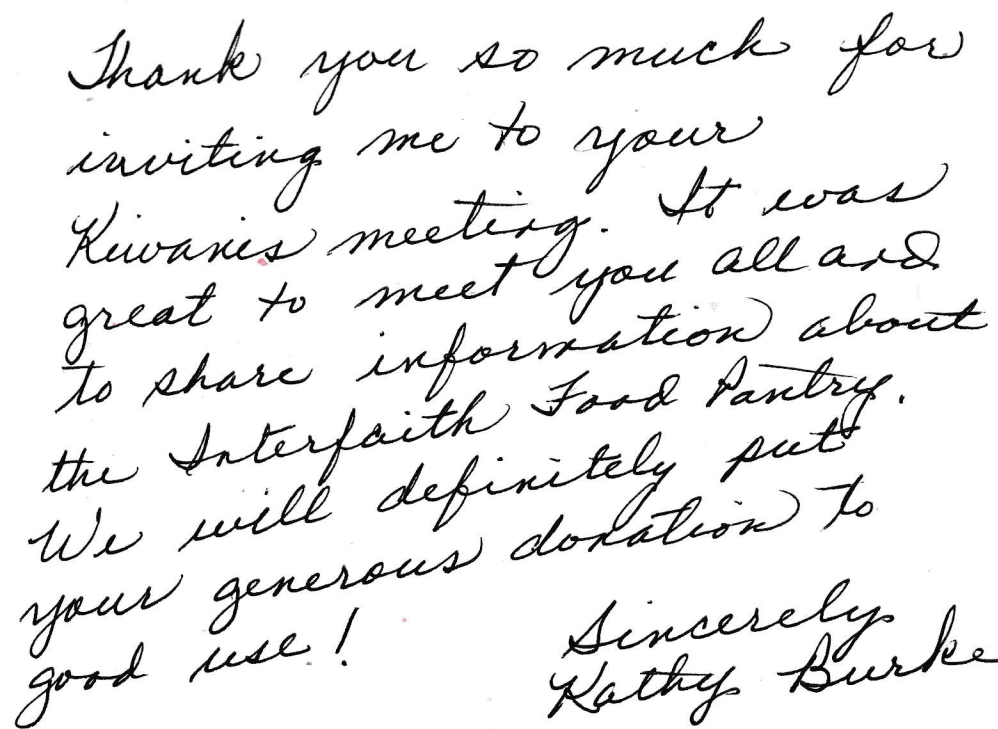 Thank you so much for
inviting me to your
Kiwanis meeting. It was
great to meet you all and
to share information about
the Interfaith Food Pantry.
We will definitely put
your generous donation to
good use!
Sincerely
Kathy Burke